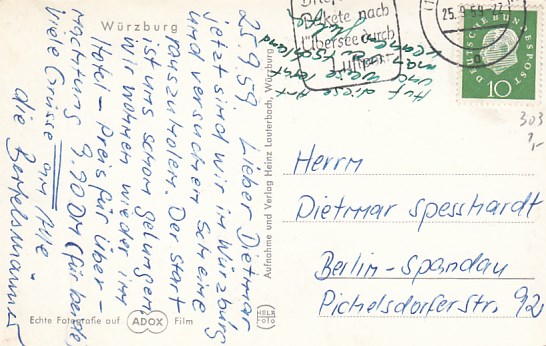 Würzburg
25.9.59. Lieber Dietmar
Jetzt sind wir in Würzburg
und versuchen Scheine
rauszuholen. Der Start
ist uns schon gelungen.
Wir wohnen wieder im
Hotel - Preis für Über-
nachtung 9,90 DM (für beide)
Viele Grüsse an Alle.
die Bertelsmänner
Auf diese Art
und Weise lernt
man
keine
Aufnahme und Verlag Heinz Lauterbach, Würzburg
Echte Fotografie auf ADOX Film
HELA
FOTO
Pakete nach
Übersee durch
Luftpost
25.9.59.-22
DEUTSCHE BUNDESPOST
10
303
Herrn
Dietmar Spesshardt
Berlin-Spandau
Pichelsdorferstr. 92